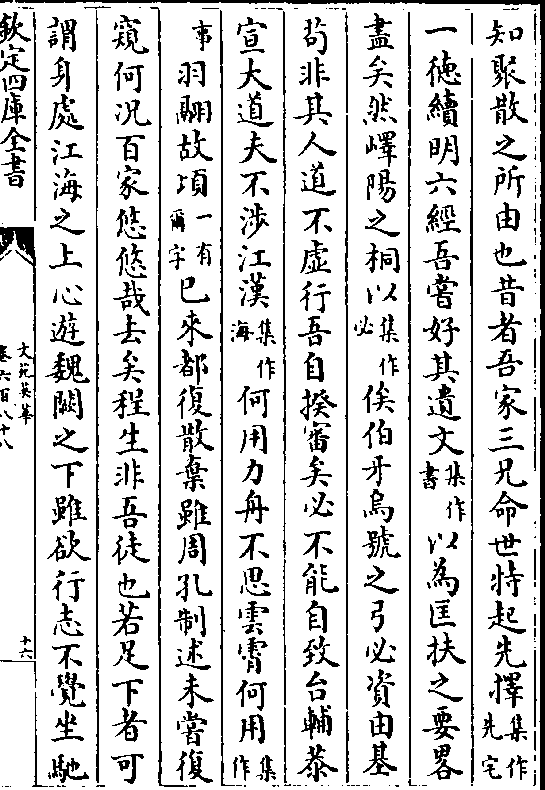 知聚散之所由也昔者吾家三兄命世特起先擇集作先宅
一徳續明六經吾嘗好其遺文集作書以為匡扶之要畧
盡矣然嶧陽之桐以集作必俟伯牙烏號之弓必資由基
茍非其人道不虛行吾自揆審矣必不能自致台輔恭
宣大道夫不涉江漢集作海何用力舟不思雲霄何用集作
事羽翮故頃一有爾字已來都復散棄雖周孔制述未嘗復
窺何况百家悠悠哉去矣程生非吾徒也若足下者可
謂身處江海之上心遊魏闕之下雖欲行志不覺坐馳
欽定四庫全書
文苑英華
卷六百八十八
十六